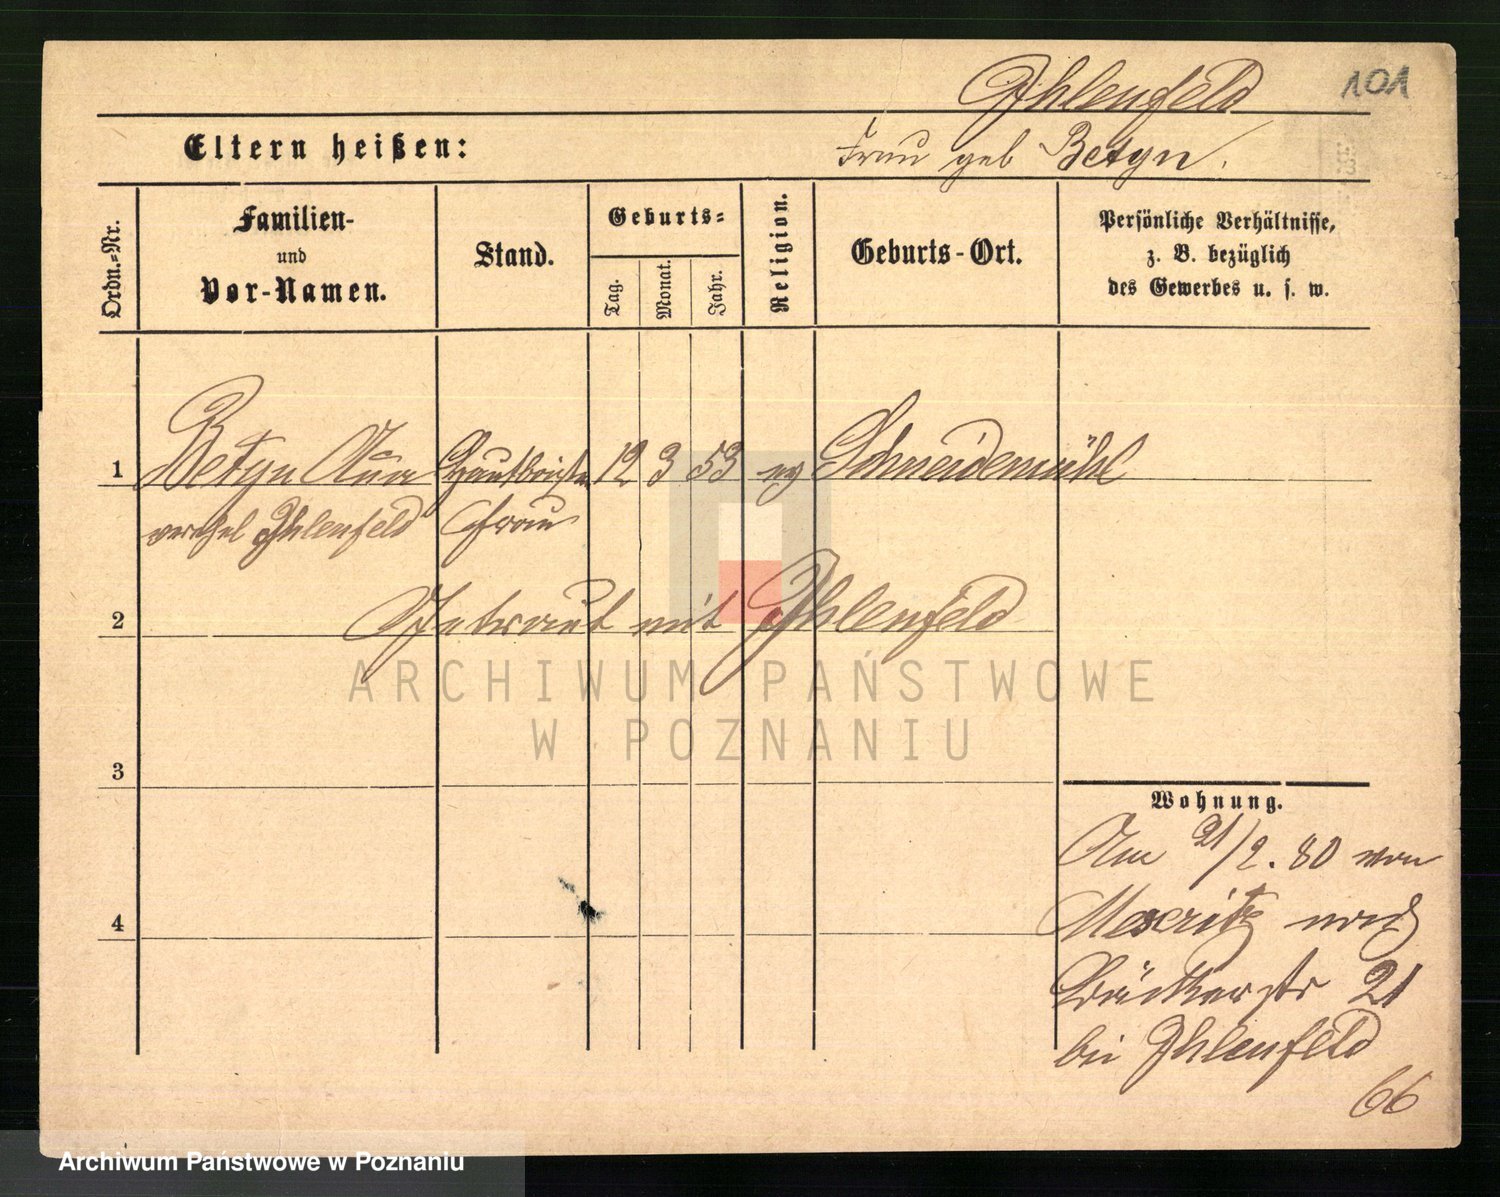 Ihlenfeld
101
Frau geb Betyn.
Eltern heißen:
Ordn.=Nr.
Familien-
und
Vor-Namen.
Stand.
Geburts=
Tag.
Monat.
Jahr.
Religion.
Geburts-Ort.
Persönliche Verhältnisse,
z. B. bezüglich
des Gewerbes u. s. w.
1 Betyn Anna 12 3 53 ev Schneidemühl
verehel Ihlenfeld Frau
2 Getraut mit Ihlenfeld
3
4
Wohnung.
Am 21/2. 80 von
Meseritz nach
Bäckerstr 21
bei Ihlenfeld
66
ARCHIWUM PAŃSTWOWE
W POZNANIU
Archiwum Państwowe w Poznaniu